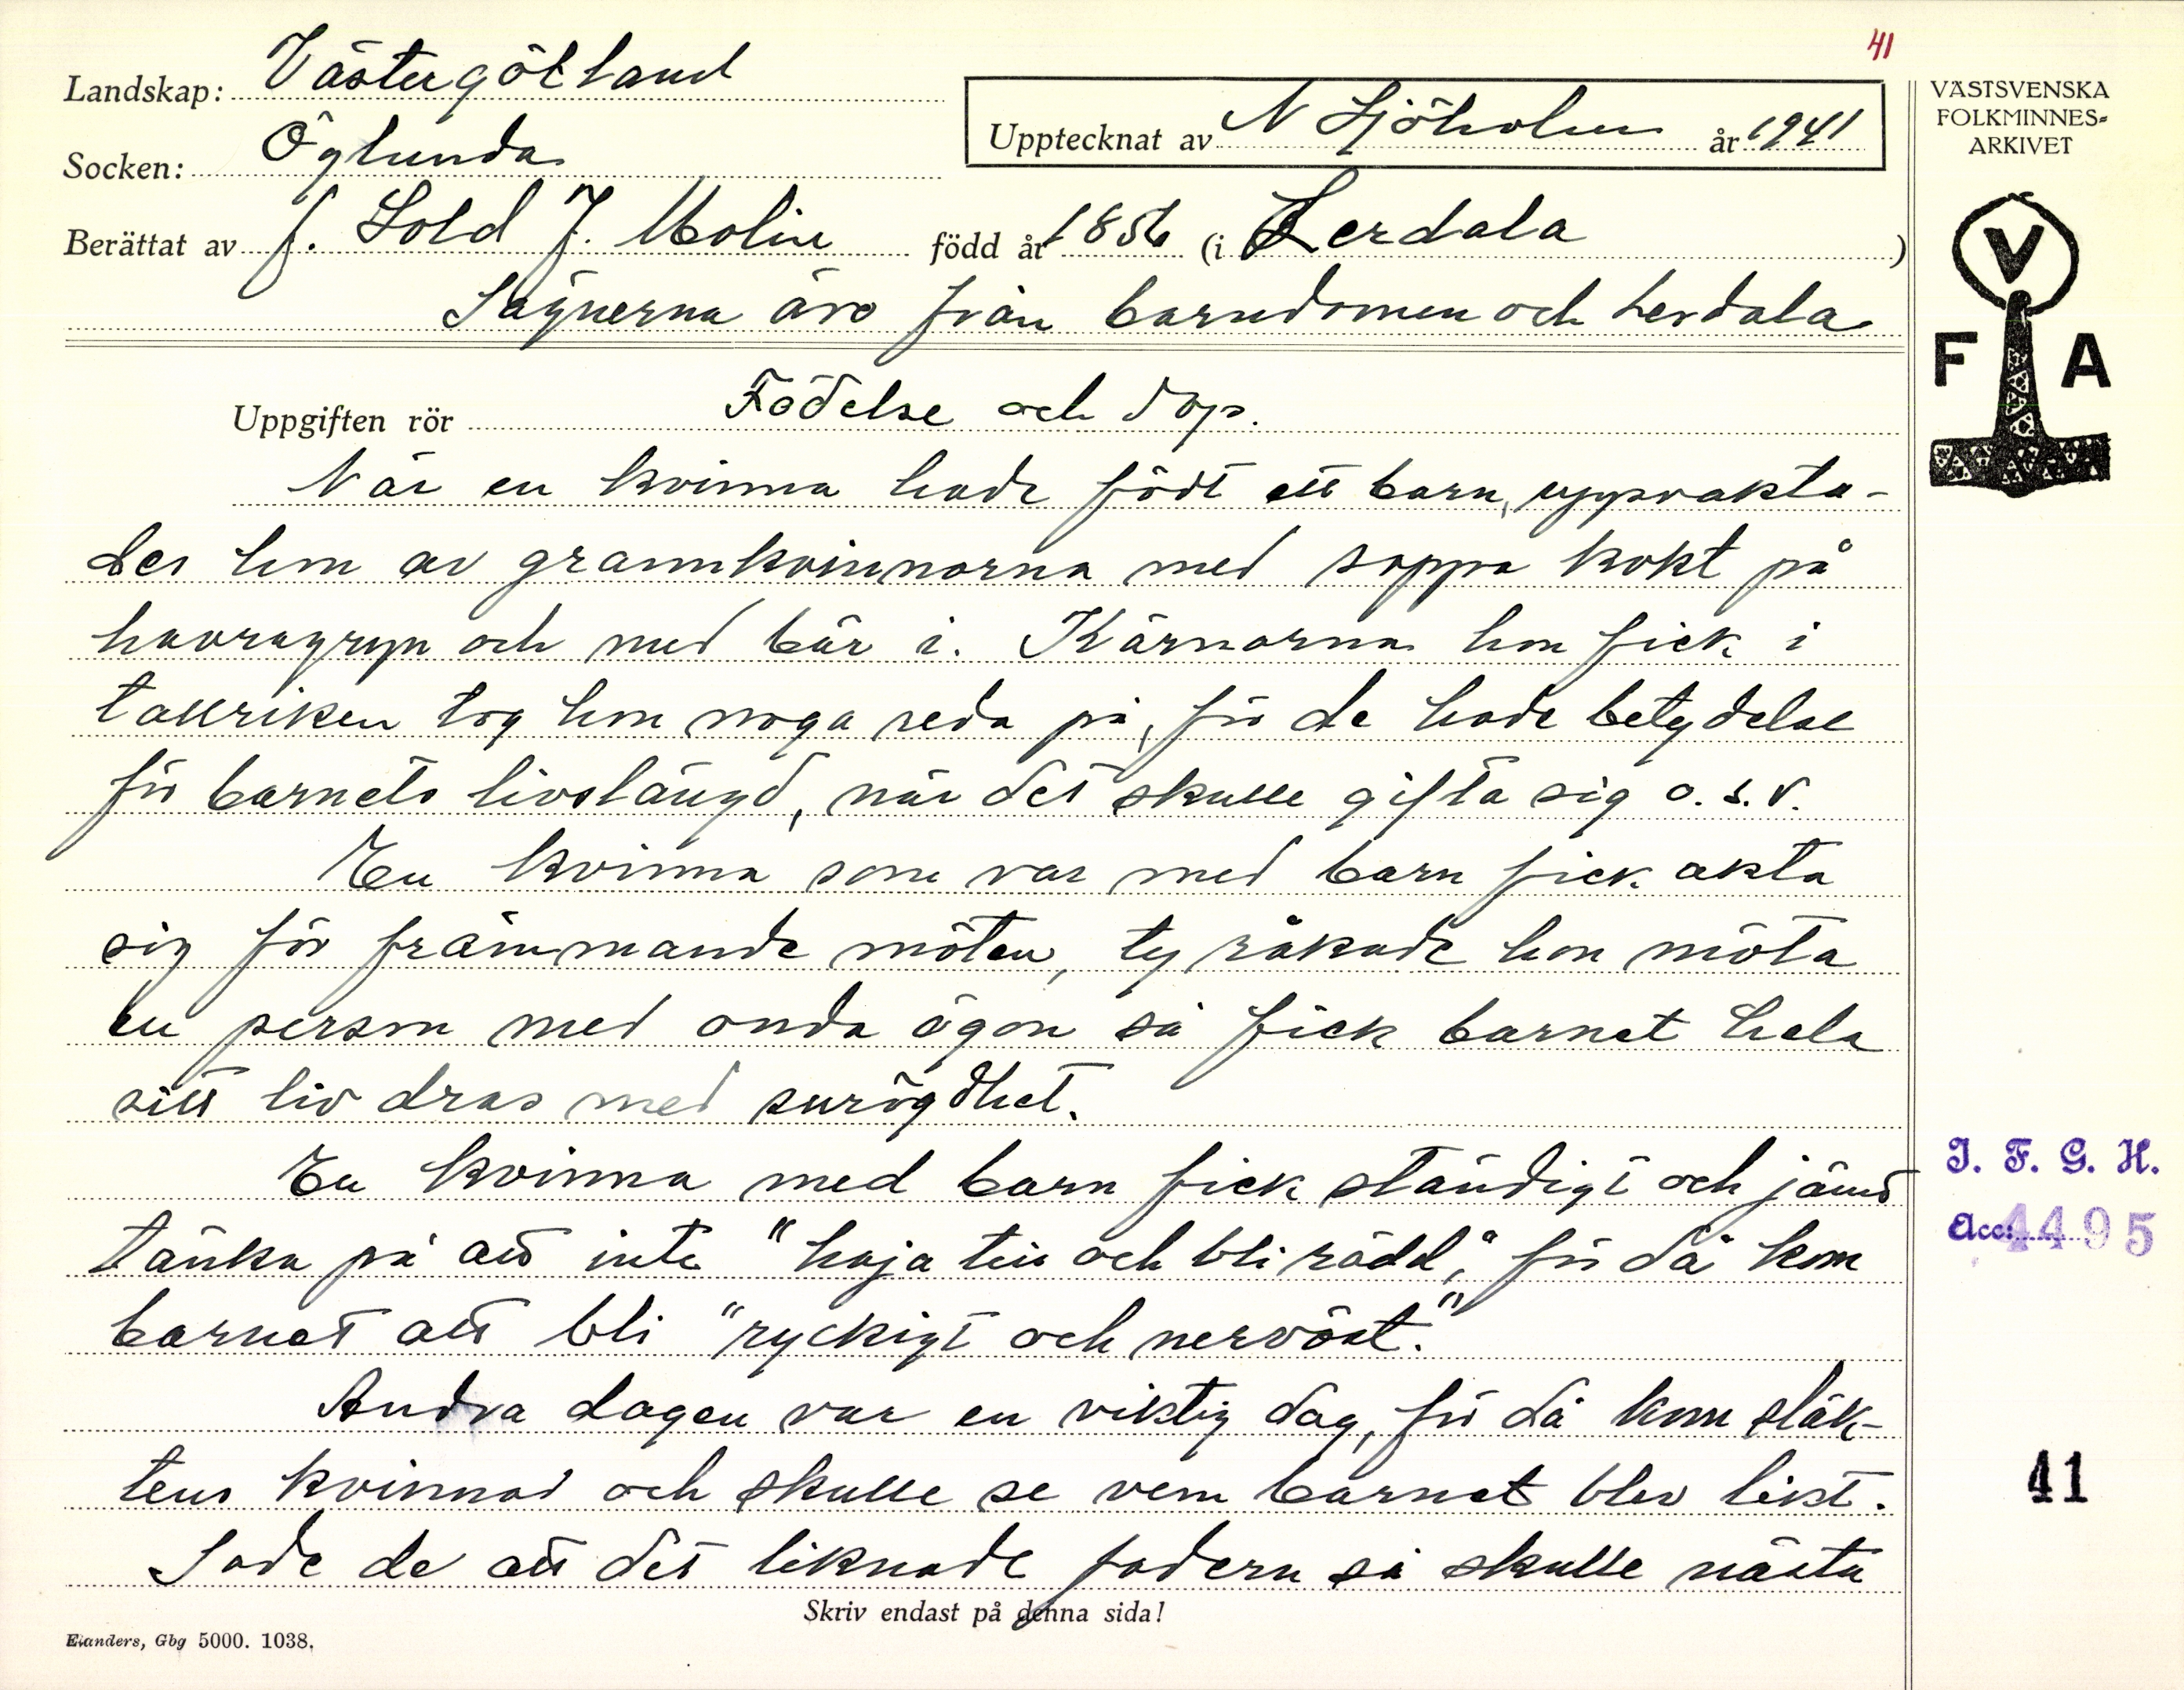 41
Landskap: Västergötland
Upptecknat av N Sjöholm år 1941
Socken: Öglunda
Berättat av f. Sold J. Molin född år 1856 (i Lerdala)
Sägnerna äro från barndomen och Lerdala
VÄSTSVENSKA
FOLKMINNES=
ARKIVET
V
F A
Uppgiften rör Födelse och dop.
När en kvinna hade födt ett barn, uppvakta-
des hon av grannkvinnorna med soppa kokt på
havragryn och med bär i. Kärnorna hon fick i
tallriken tog hon noga reda på, för de hade betydelse
för barnets livslängd, när det skulle gifta sig o.s.v.
En kvinna som var med barn fick akta
sig för främmande möten, ty råkade hon möta
en person med onda ögon så fick barnet hela
sitt liv dras med surögdhet.
En kvinna med barn fick ständigt och jämt
tänka på att inte "haja till och bli rädd", för då kom
barnet att bli "ryckigt och nervöst."
Andra dagen var en viktig dag, för då kom släk-
tens kvinnor och skulle se vem barnet blev likt.
Sade de att det liknade fadern så skulle nästa
Skriv endast på denna sida!
Elanders, Gbg 5000. 1038.
I. F. G. H.
Acc: 4495
41